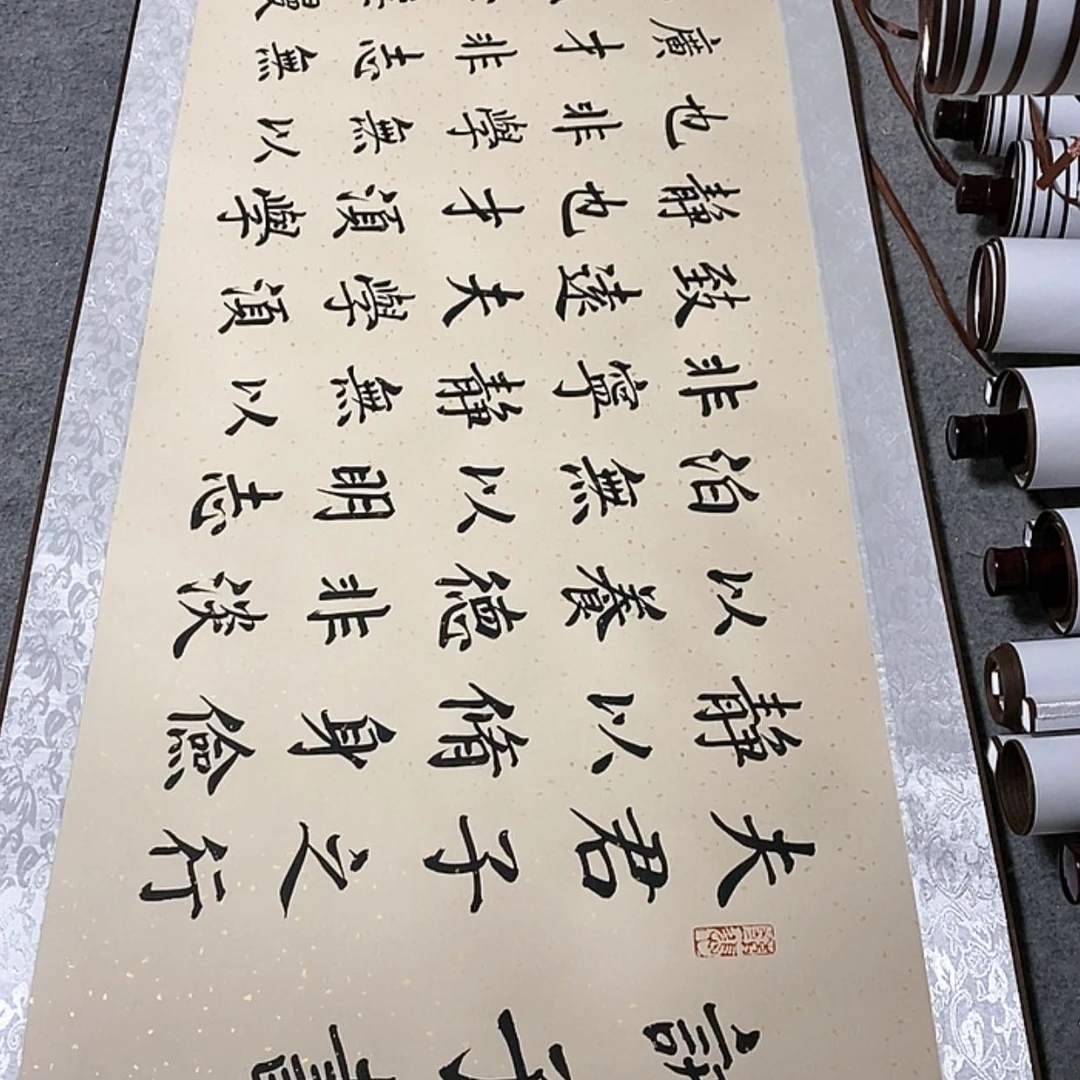 誡子書
夫君子之行
静以脩身儉
以養德非淡
泊無以明志
非寧静無以
致遠夫學須
静也才須學
也非學無以
廣才非志無